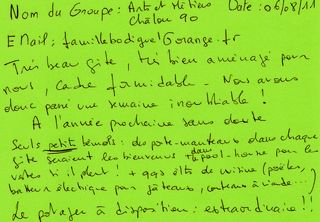 Nom du Groupe: Arts et Métiers Date: 06/08/11
Châlon 90
EMail: famillebodiguel@orange.fr
Très beau gîte, très bien aménagé pour
nous, cadre formidable. Nous avons
donc passé une semaine inoubliable!
A l'année prochaine sans doute
Seuls petits bémols: des porte-manteaux dans chaque
gîte seraient les bienvenus dans le pool-house pour les
vestes s'il pleut! + qqs élts de cuisine (poêles,
batteur électrique pour gâteaux, couteaux à viande...)
Le potager à disposition: extraordinaire!!